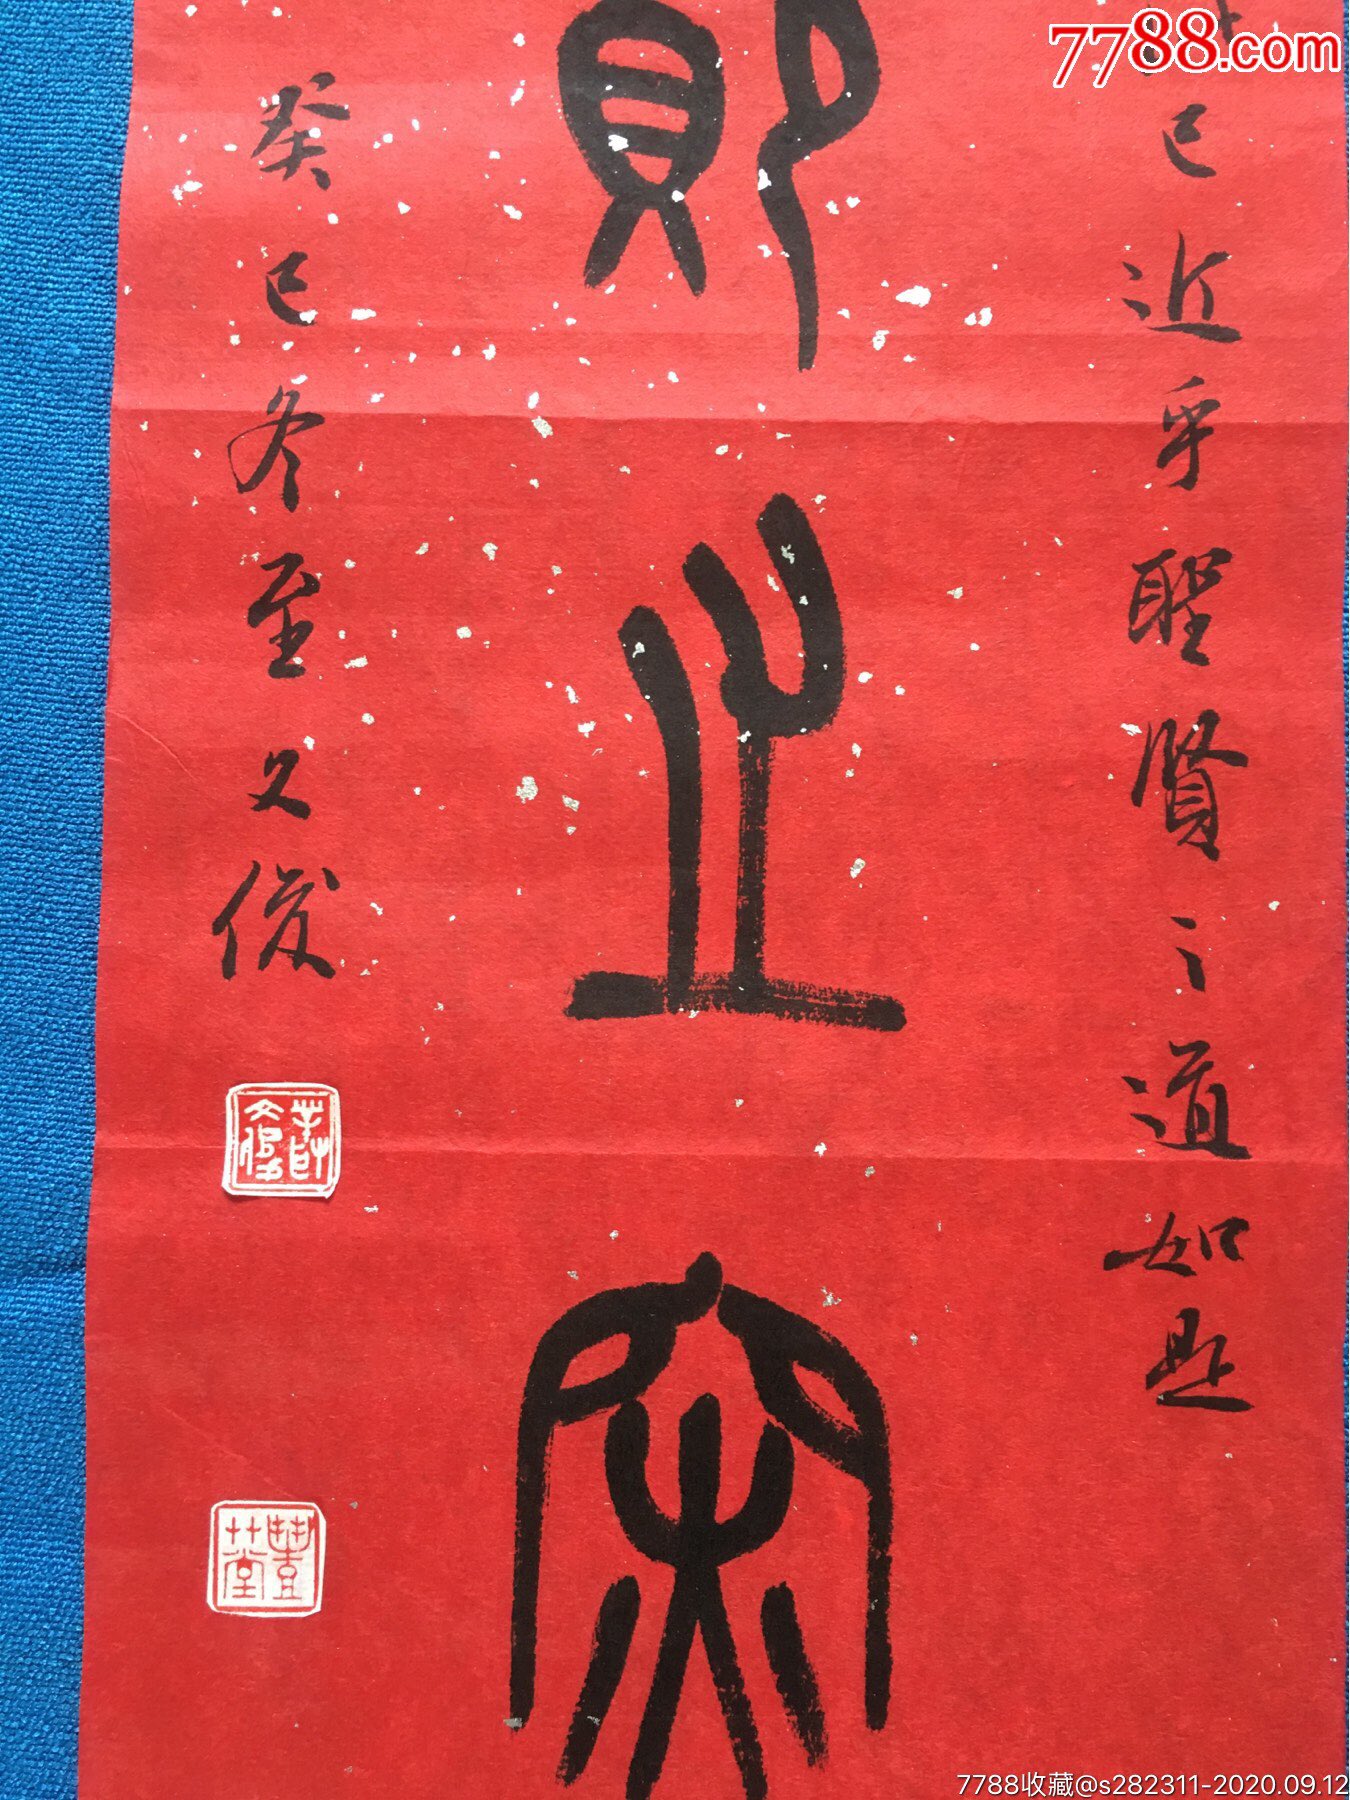 7788.com
已近乎聖賢之道如是
則止
癸巳冬至文俊
7788收藏@s282311-2020.09.12